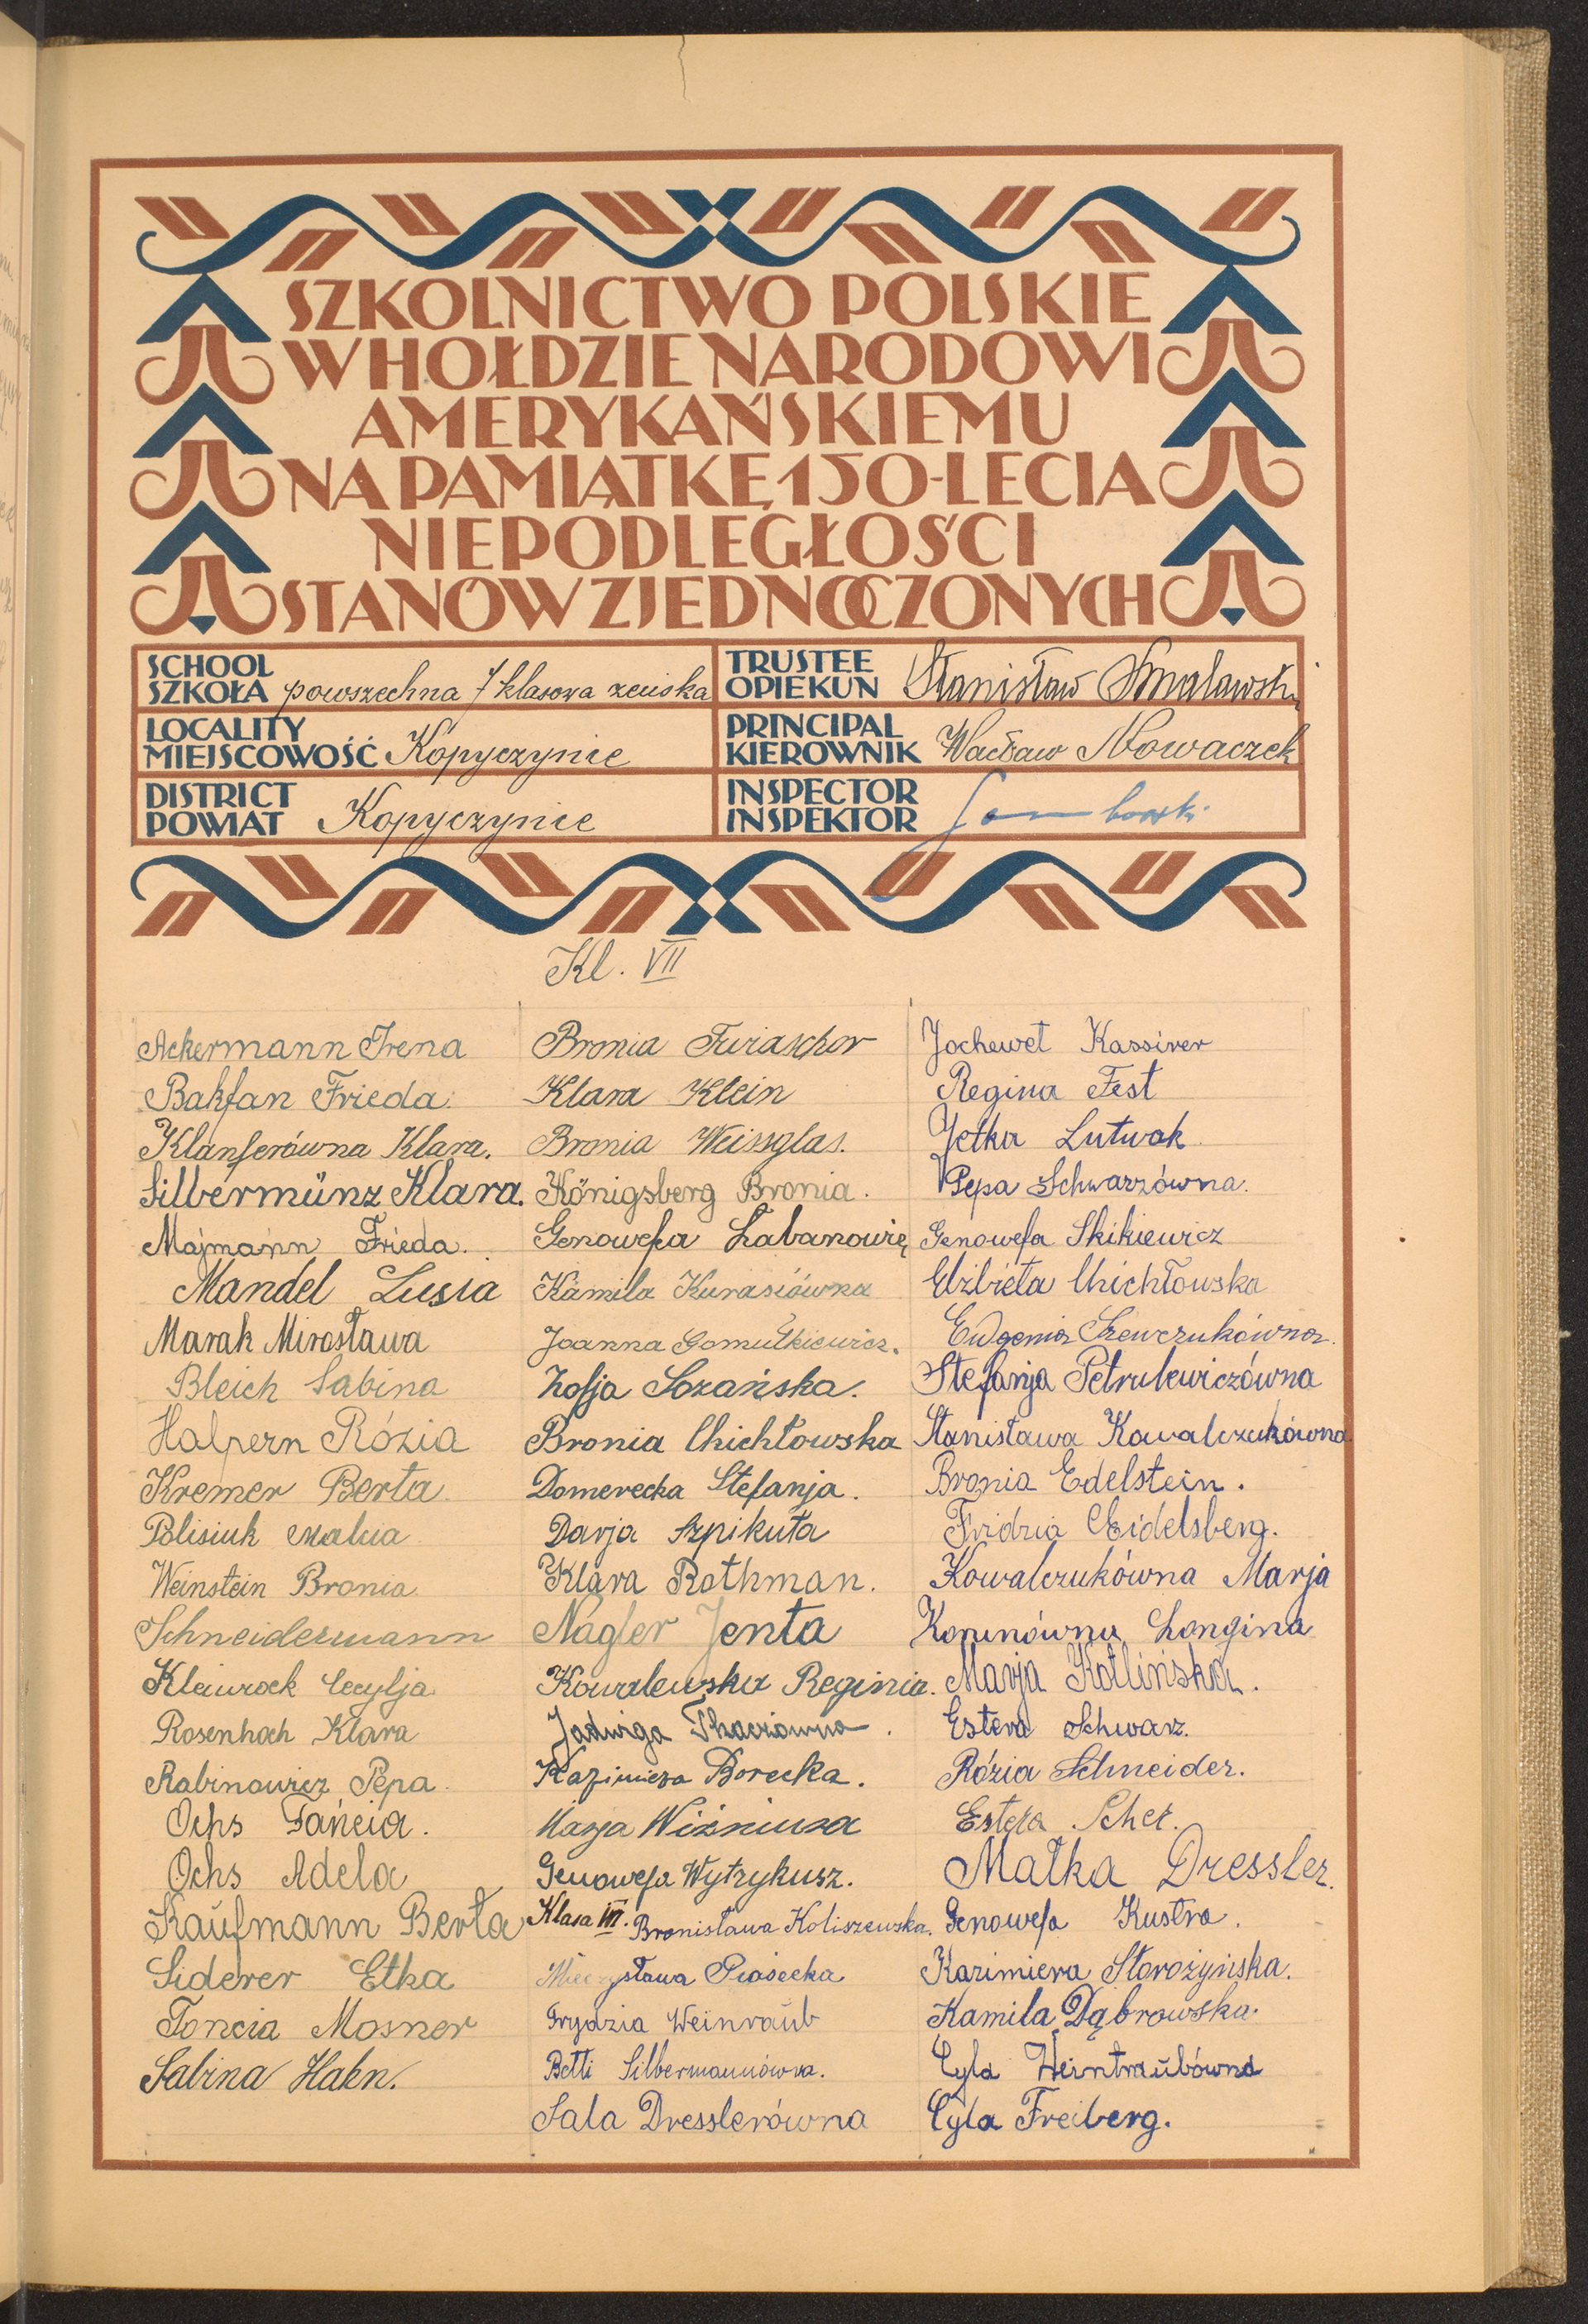 SZKOLNICTWO POLSKIE
W HOŁDZIE NARODOWI
AMERYKAŃSKIEMU
NA PAMIĄTKĘ 150-LECIA
NIEPODLEGŁOŚCI
STANÓW ZJEDNOCZONYCH
SCHOOL
SZKOŁA powszechna 7 klasowa żeńska
TRUSTEE
OPIEKUN Stanisław Smalawski
LOCALITY
MIEJSCOWOŚĆ Kopyczyńce
PRINCIPAL
KIEROWNIK Wacław Nowaczek
DISTRICT
POWIAT Kopyczyńce
INSPECTOR
INSPEKTOR
Kl. VII
Ackermann Irena
Bakfan Frieda.
Klanferówna Klara.
Silbermünz Klara.
Majmann Frieda.
Mandel Lusia
Marak Mirosława
Bleich Sabina
Halpern Rózia
Kremer Berta
Polisiuk Malcia
Weinstein Bronia
Schneidermann
Kleinrock Cecylja
Rosenhoch Klara
Rabinowicz Pepa.
Ochs Fańcia.
Ochs Adela
Kaufmann Berta
Siderer Etka
Toncia Mosner
Sabina Hahn.
Bronia Twiaschor
Klara Klein
Bronia Weissglas.
Königsberg Bronia.
Genowefa Łabanowię
Kamila Kurasiówna
Joanna Gomułkiewicz.
Zofja Sozańska.
Bronia Chichłowska
Domerecka Stefanja.
Darja Szpikuta
Klara Rothman.
Nagler Jenta
Kowalewska Reginia.
Jadwiga Tkaczówna.
Kazimiera Borecka.
Marja Wiźniura
Genowefa Wytrykusz.
Klasa VI. Bronisława Koliszewska.
Mieczysława Piasecka
Frydzia Weinraub
Betti Silbermannówna.
Sala Dresslerówna
Jochewet Kassirer
Regina Fest
Jetka Lutwak
Pepa Schwarzówna.
Genowefa Skikiewicz
Elżbieta Chichłowska
Eugenia Szewczukówna.
Stefanja Petrulewiczówna
Stanisława Kowalczukówna.
Bronia Edelstein.
Fridzia Eidelsberg.
Kowalczukówna Marja
Korunówna Longina
Marja Kotlińska.
Estera Schwarz.
Rózia Schneider.
Estera Scher.
Małka Dressler.
Genowefa Kustra.
Kazimiera Starożyńska.
Kamila Dąbrowska.
Cyla Weintraubówna
Cyla Freiberg.